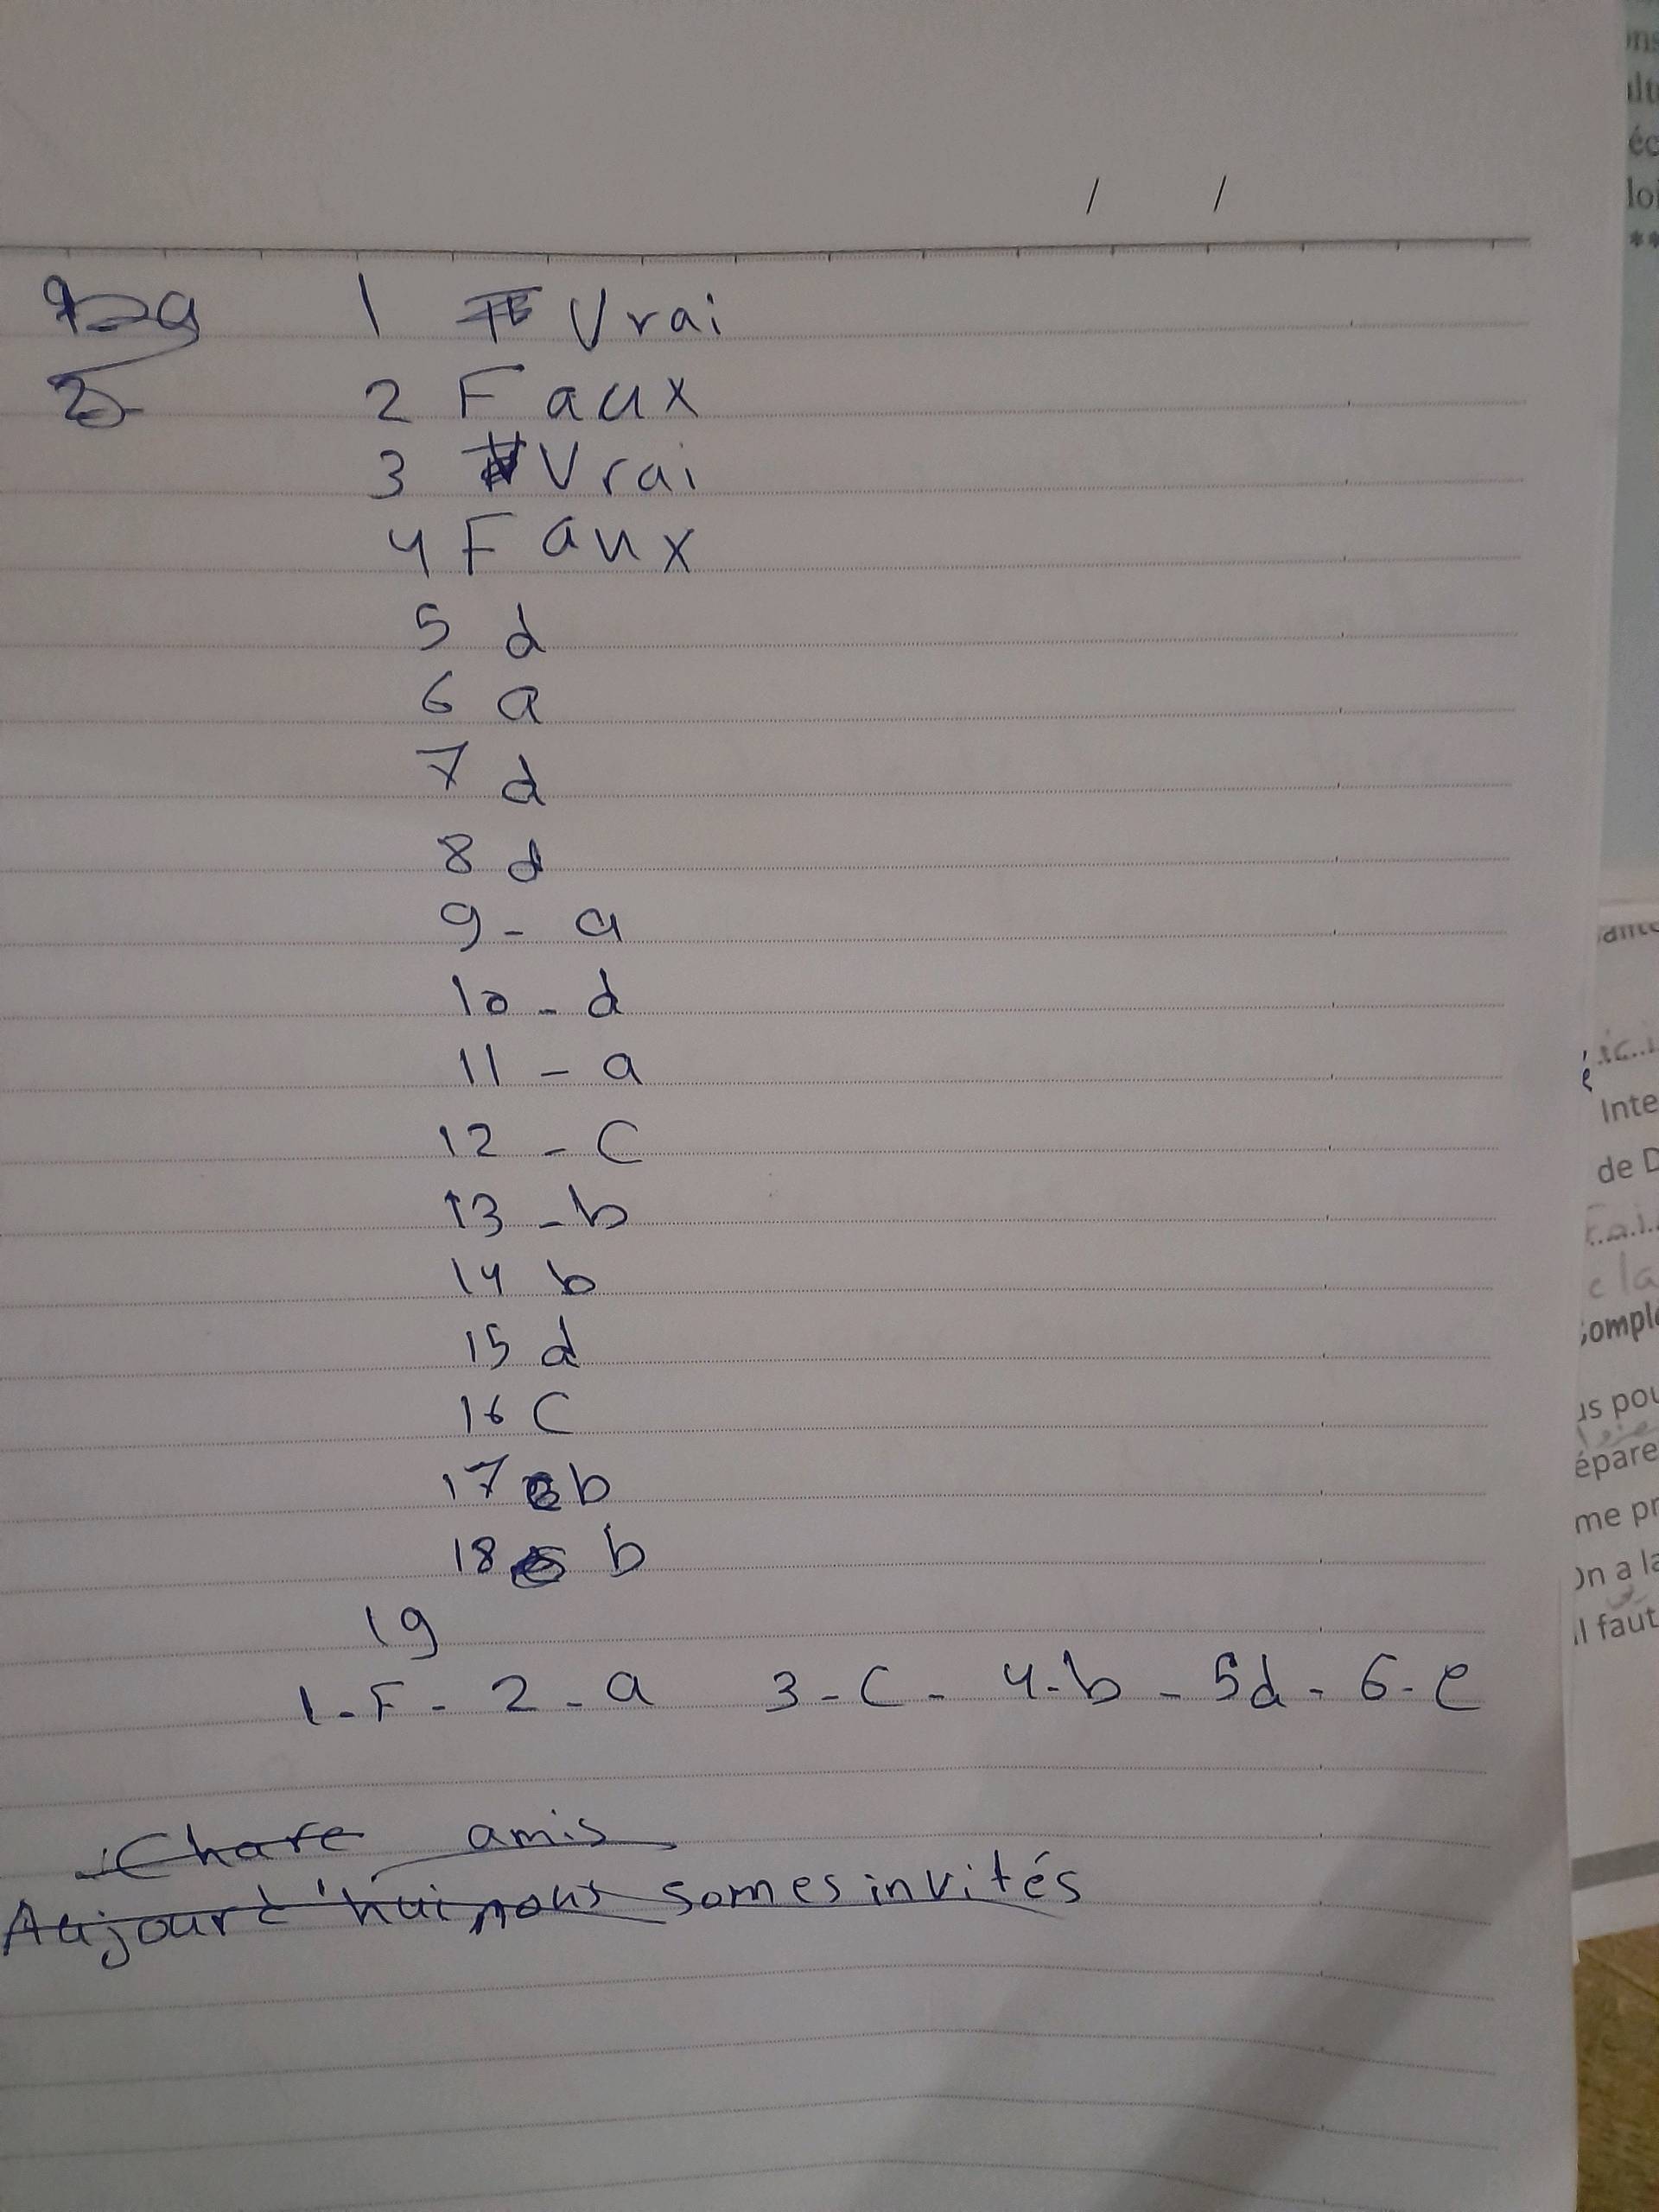 / /
1 Vrai
2 Faux
3 Vrai
4 Faux
5 d
6 a
7 d
8 d
9 - a
10 - d
11 - a
12 - C
13 - b
14 b
15 d
16 C
17 b
18 b
19
1 - F - 2 - a 3 - C - 4 - b - 5 d - 6 - e
Chare amis
Aujourd'hui nous somes invités
ons
éc
loi
**
Inte
de D
Compl
us pou
épare
me pr
On a la
il faut